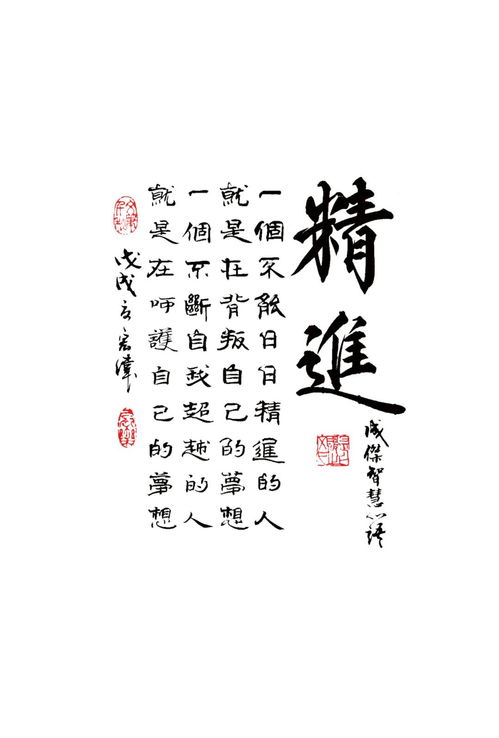 精進
成傑智慧心語
一個不能日日精進的人
就是在背叛自己的夢想
一個不斷自我超越的人
就是在呼護自己的夢想
戊戌